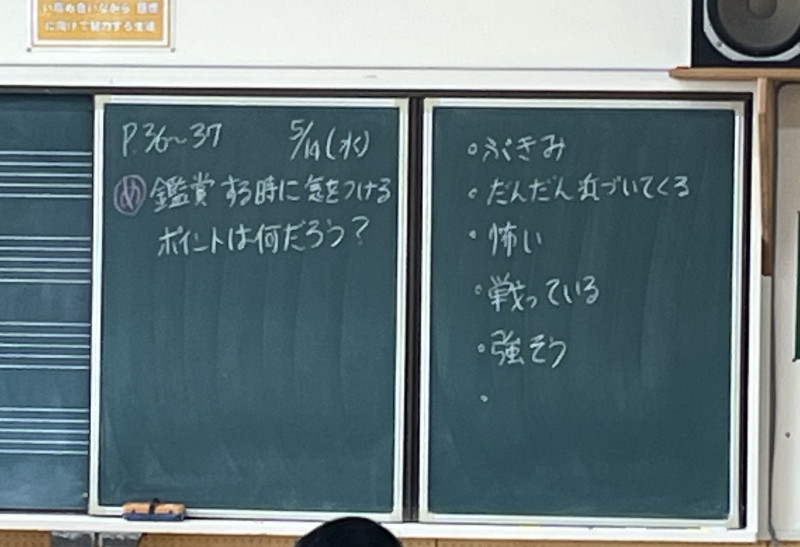 い高め合いながら 目標
に向けて努力する生徒
P.36〜37 5/14(水)
め 鑑賞する時に気をつける
ポイントは何だろう？
・ぶきみ
・だんだん近づいてくる
・怖い
・戦っている
・強そう
・